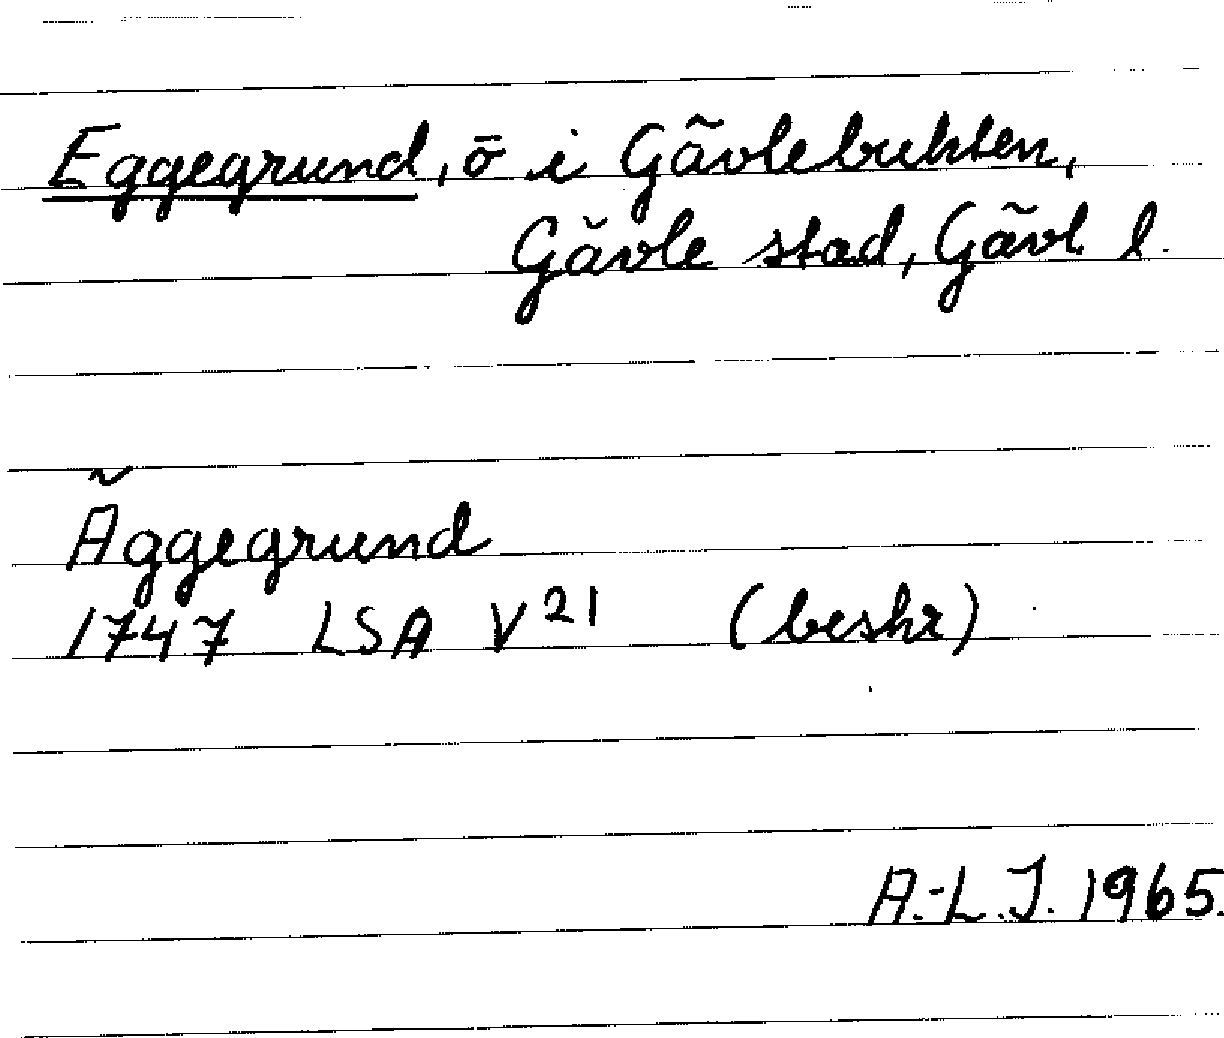 Eggegrund, ö i Gävlebukten,
Gävle stad, Gävl. l.
Äggegrund
1747 LSA V 21 (beskr)
A.-L. J. 1965.